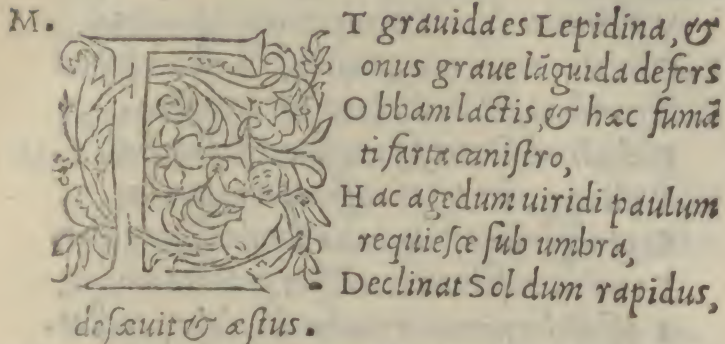 M. ET grauida es Lepidina, &
onus graue lāguida defers
Obbam lactis, & hæc fumā
ti farta caniſtro,
Hac agedum uiridi paulum
requieſce ſub umbra,
Declinat Sol dum rapidus,
deſæuit & æſtus.